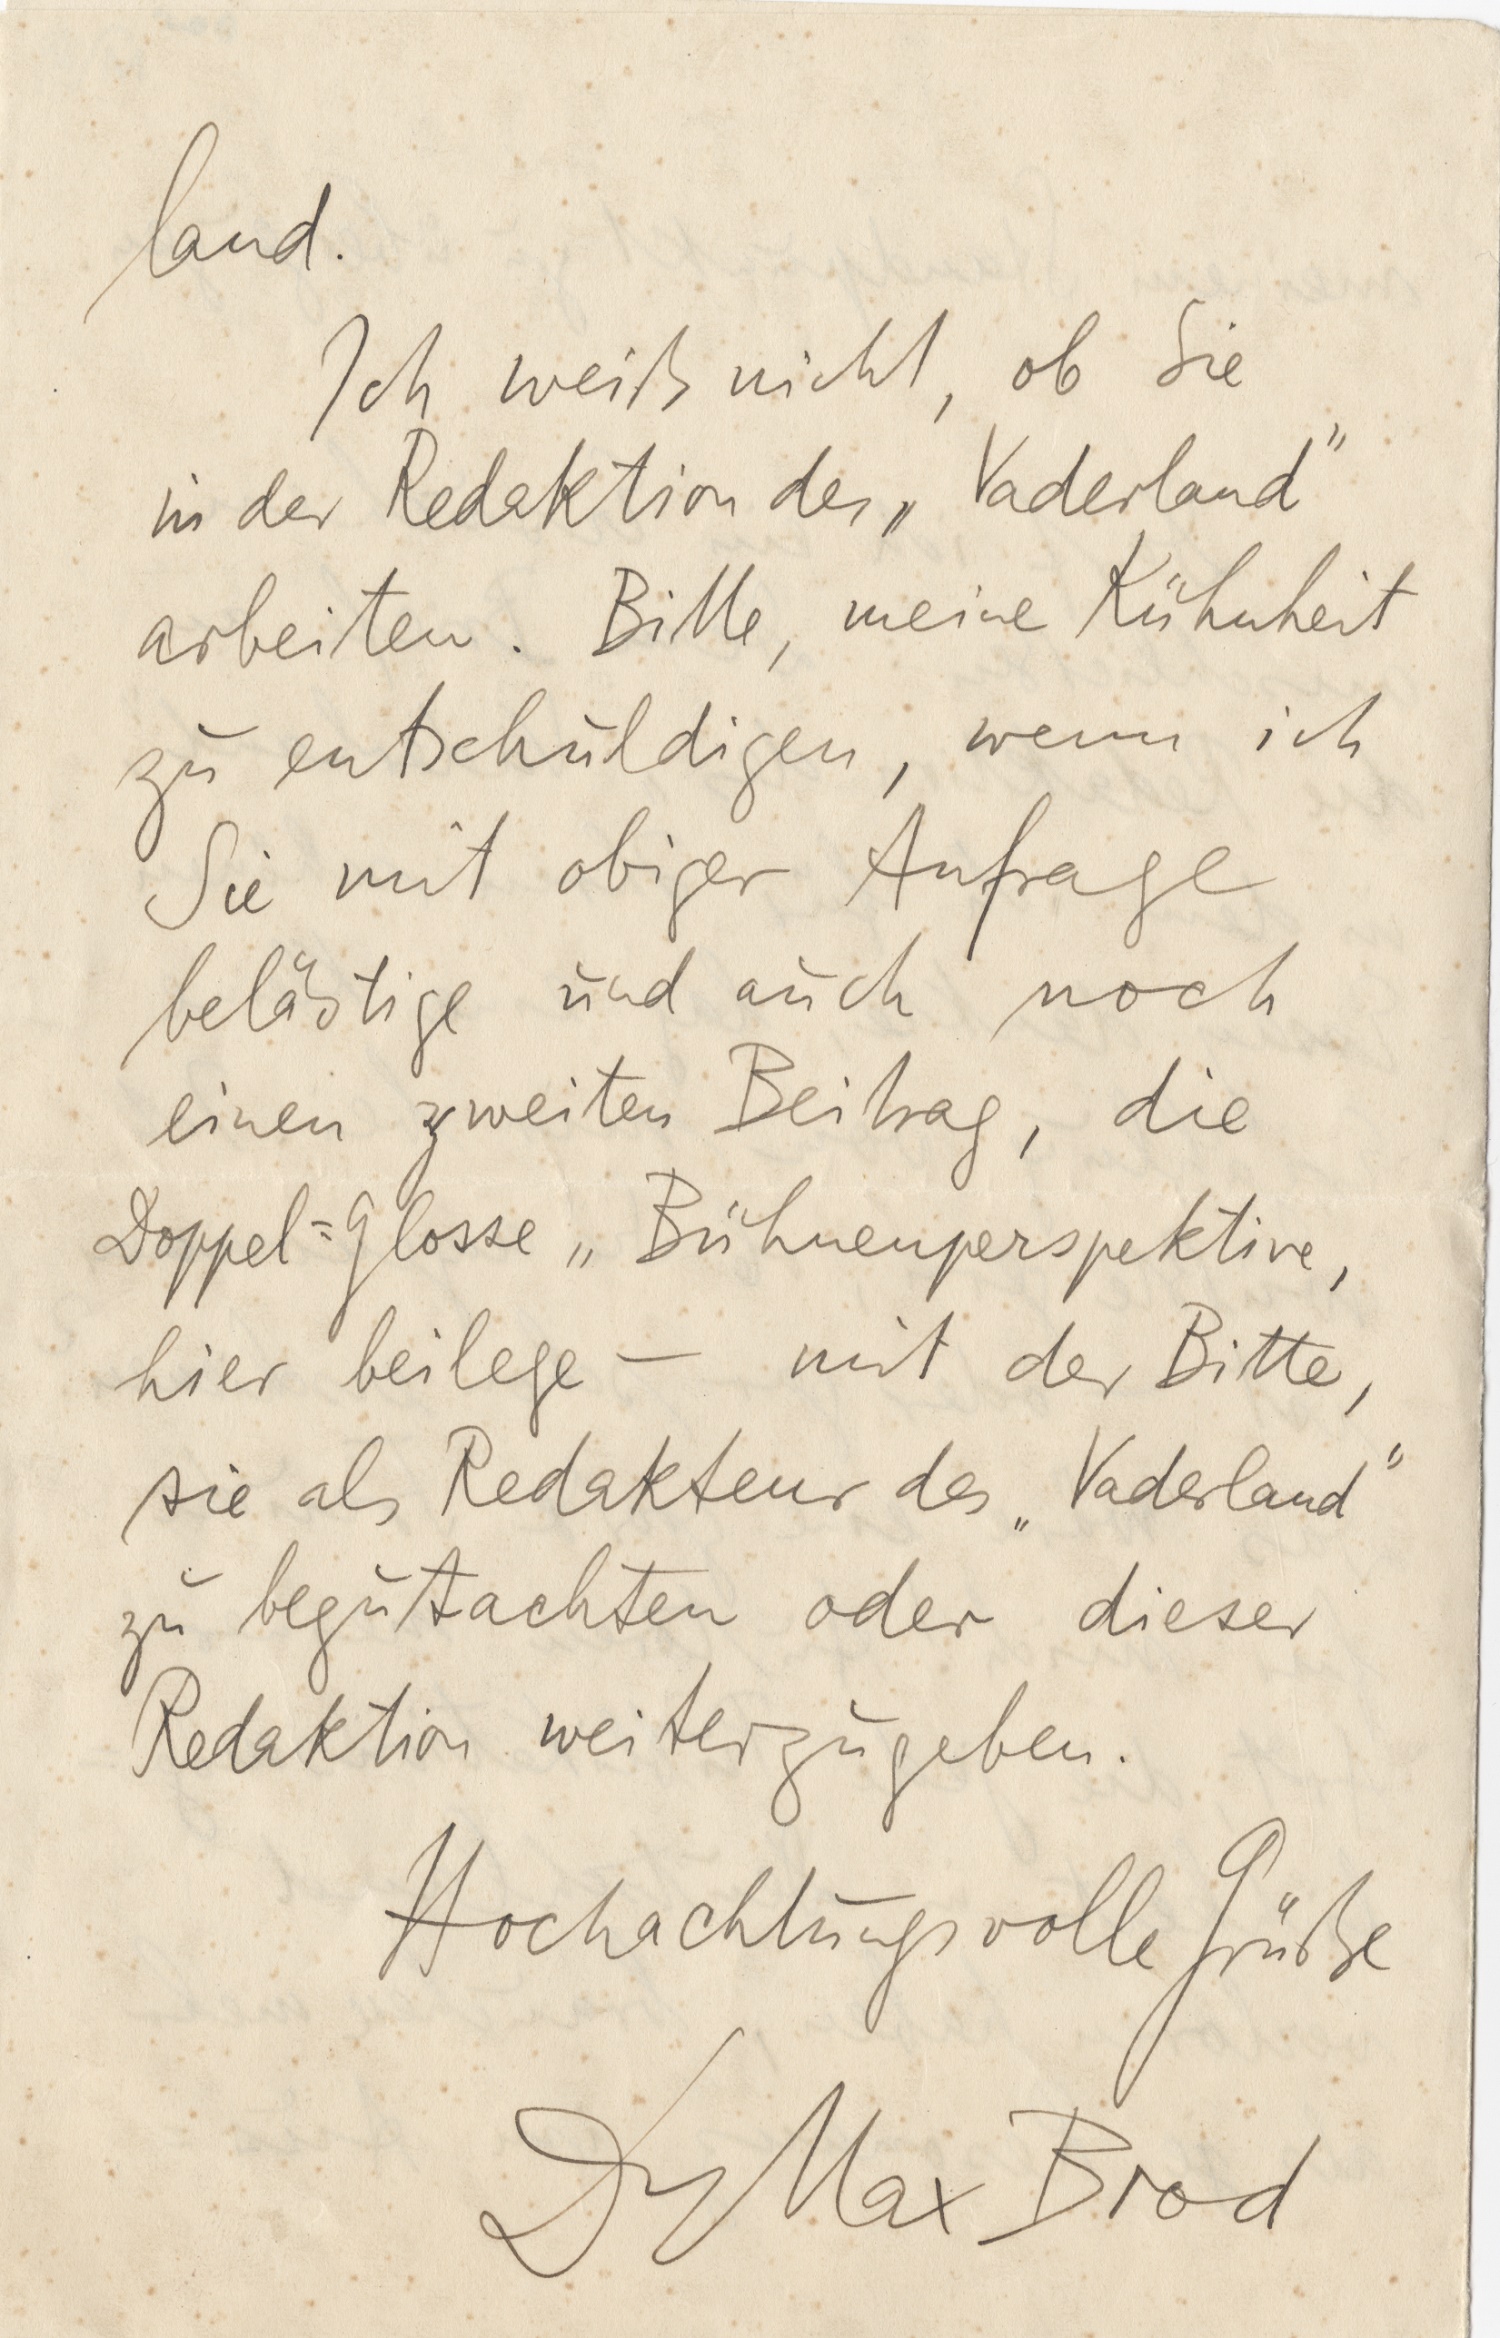 land.
Ich weiß nicht, ob Sie
in der Redaktion des „Vaderland"
arbeiten. Bitte, meine Kühnheit
zu entschuldigen, wenn ich
Sie mit obiger Anfrage
belästige und auch noch
einen zweiten Beitrag, die
Doppel=Glosse „Bühnenperspektive,
hier beilege – mit der Bitte,
sie als Redakteur des „Vaderland"
zu begutachten oder dieser
Redaktion weiterzugeben.
Hochachtungsvolle Grüße
Dr Max Brod